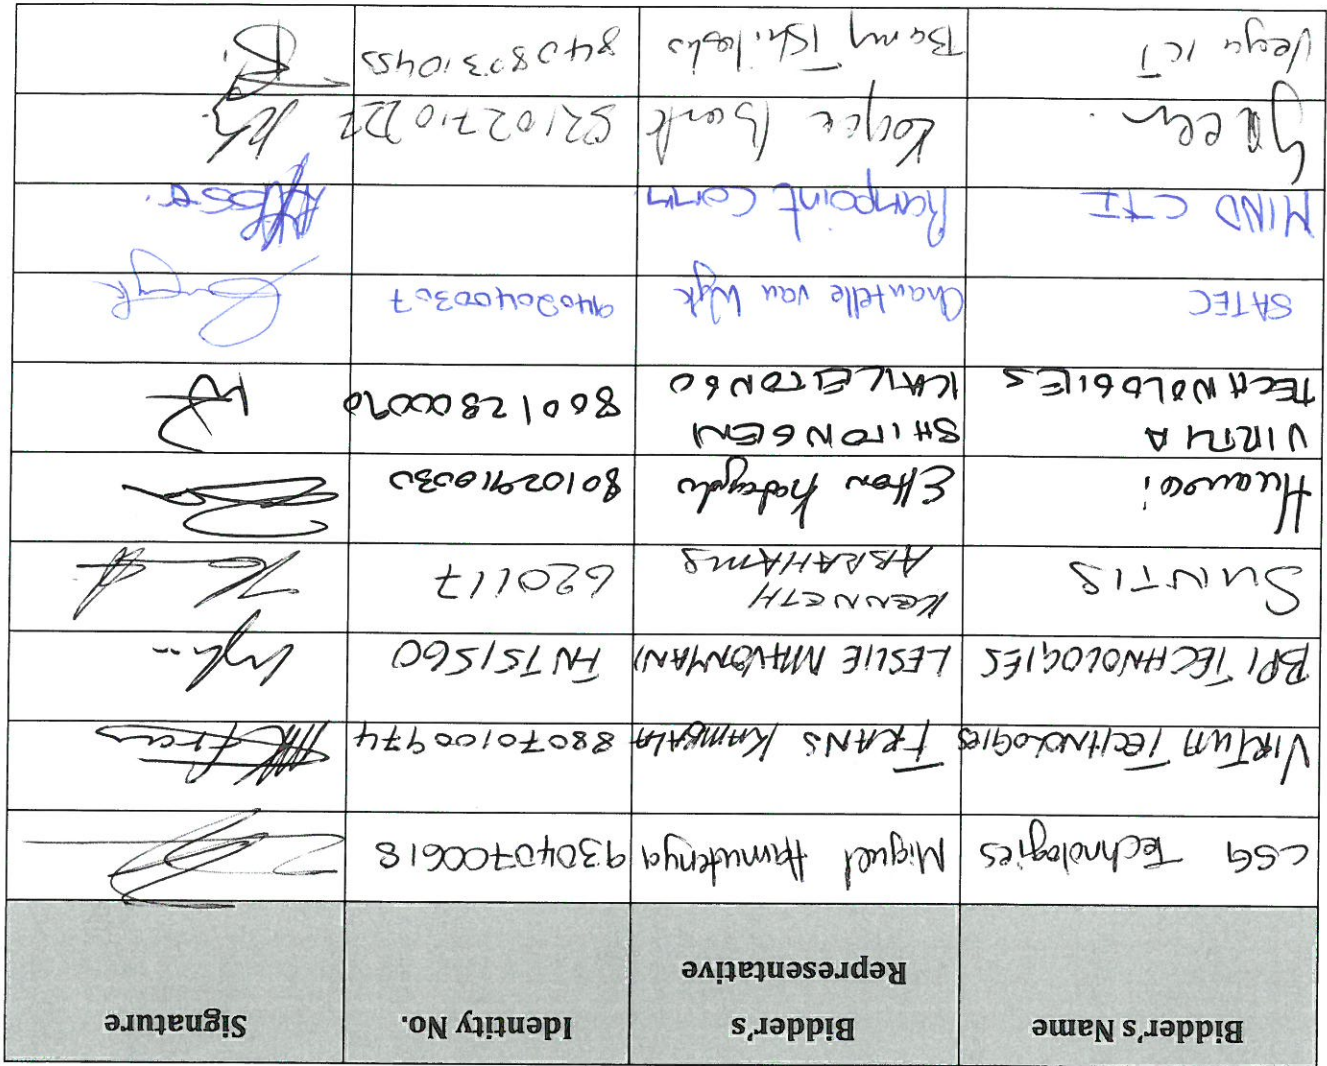 Bidder's Name Bidder's Representative Identity No. Signature
CSG Technologies Miguel Hamutenya 93040700618
VIRTUA TECHNOLOGIES FRANS KAMBALA 88070100974
BPI TECHNOLOGIES LESLIE MAVONMANI FN751560
SUNTIS KENNETH ABRAHAMS 620117
Huawei Elton 80102910030
VIRTUA TECHNOLOGIES SHITONGENI KATLETONGO 86012800090
SATEC Chantelle van Wyk 94020400307
MIND CTI Rampoint Comm
82102710122
Vega ICT 84087310455